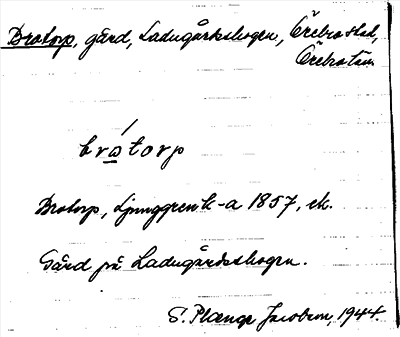 Brotorp, gård, Ladugårdsskogen, Örebro stad,
Örebro län
brotorp
Brotorp, Ljunggren k-a 1857, ek.
Gård på Ladugårdsskogen.
S. Plænge Jacobson, 1944.